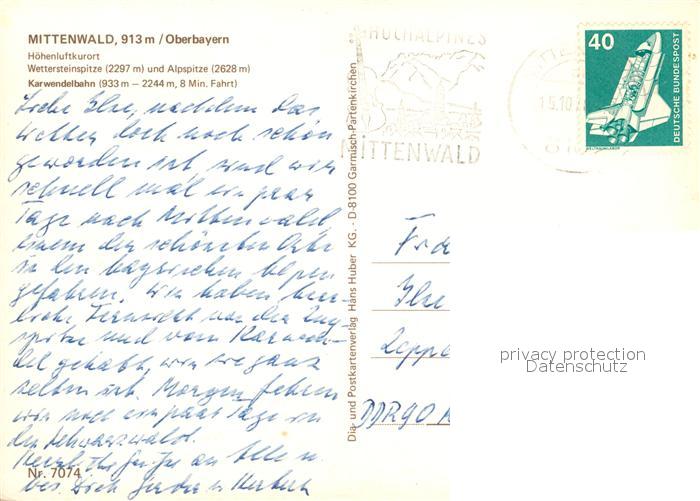 MITTENWALD, 913 m / Oberbayern
Höhenluftkurort
Wettersteinspitze (2297 m) und Alpspitze (2628 m)
Karwendelbahn (933 m – 2244 m, 8 Min. Fahrt)
Liebe Ilse, nachdem das
Wetter doch noch schön
geworden ist, sind wir
schnell mal ein paar
Tage nach Mittenwald,
einem der schönsten Orte
in den bayrischen Alpen
gefahren. Wir haben herr-
liche Fernsicht von der Zug-
spitze und vom Karwen-
del gehabt, wie sie ganz
selten ist. Morgen fahren
wir noch ein paar Tage in
den Schwarzwald.
Herzliche Grüße an Alle u.
bes. Dich Gerda u. Herbert
Nr. 7074
Dia- und Postkartenverlag Hans Huber KG. - D-8100 Garmisch-Partenkirchen
HOCHALPINES
MITTENWALD
15.10.
40
DEUTSCHE BUNDESPOST
WELTRAUMLABOR
Ilse
privacy protection
Datenschutz